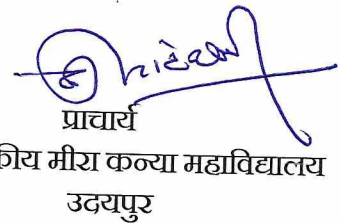 प्राचार्य
कीय मीरा कन्या महाविद्यालय
उदयपुर